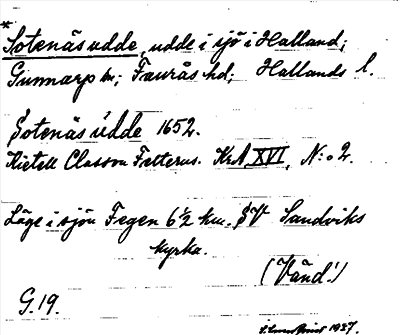 *
Sotenäs udde, udde i sjö i Halland;
Gunnarp sn; Faurås hd; Hallands l.
Sotenäs udde 1652.
Kietell Classon Felterus. KrA XVI, N:o 2.
Läge i sjön Fegen 6½ km. SV Sandviks
kyrka.
(Vänd!)
G. 19.
1937.